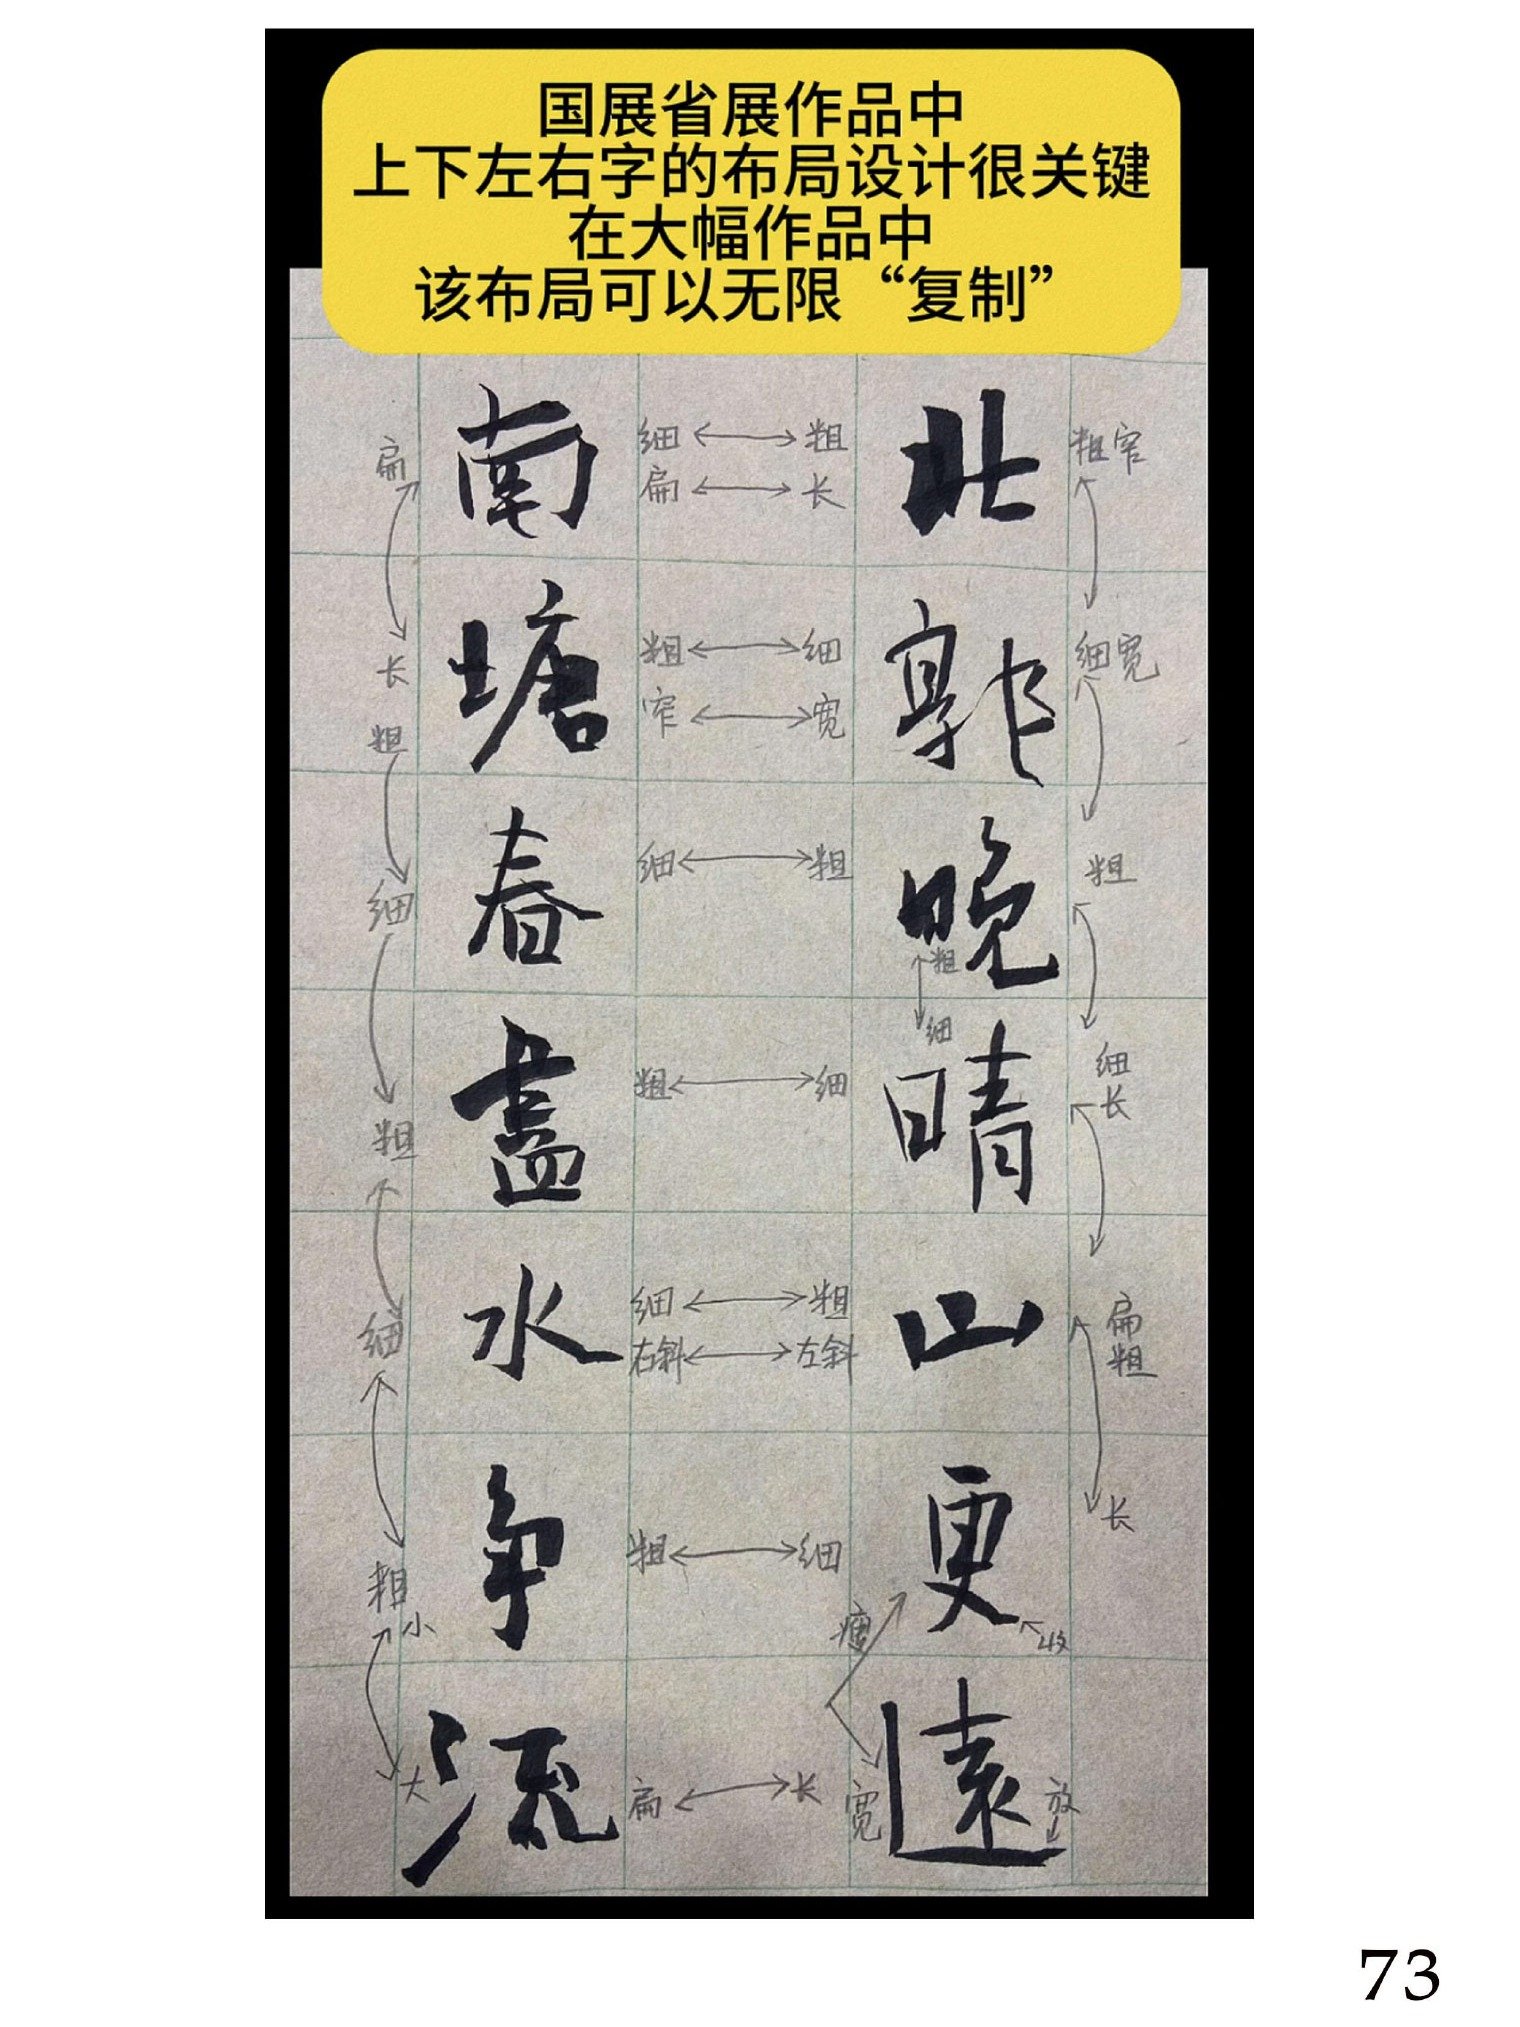 国展省展作品中
上下左右字的布局设计很关键
在大幅作品中
该布局可以无限“复制”
北郭晚晴山更遠
南塘春盡水争流
粗窄
细宽
粗
细
长
扁
粗
长
粗
细
收
瘦
宽
放
细 粗
扁 长
粗 细
窄 宽
细 粗
粗 细
细 粗
右斜 左斜
粗 细
扁 长
扁
长
粗
细
粗
细
粗
小
大
73